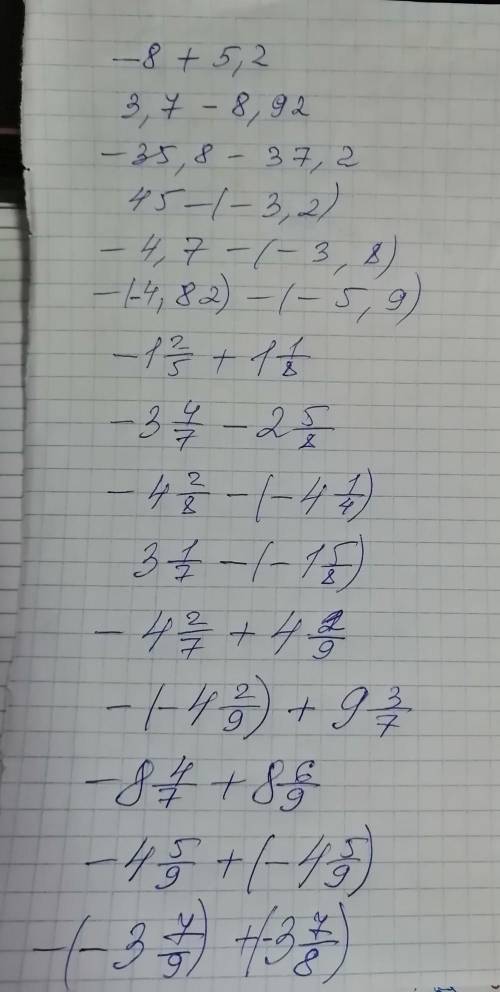 -8 + 5,2
3,7 - 8,92
-35,8 - 37,2
45 - (-3,2)
-4,7 - (-3,8)
-(-4,82) - (-5,9)
-1 2/5 + 1 1/8
-3 4/7 - 2 5/8
-4 2/8 - (-4 1/4)
3 1/7 - (-1 5/8)
-4 2/7 + 4 2/9
-(-4 2/9) + 9 3/7
-8 4/7 + 8 6/9
-4 5/9 + (-4 5/9)
-(-3 7/9) + (-3 7/8)